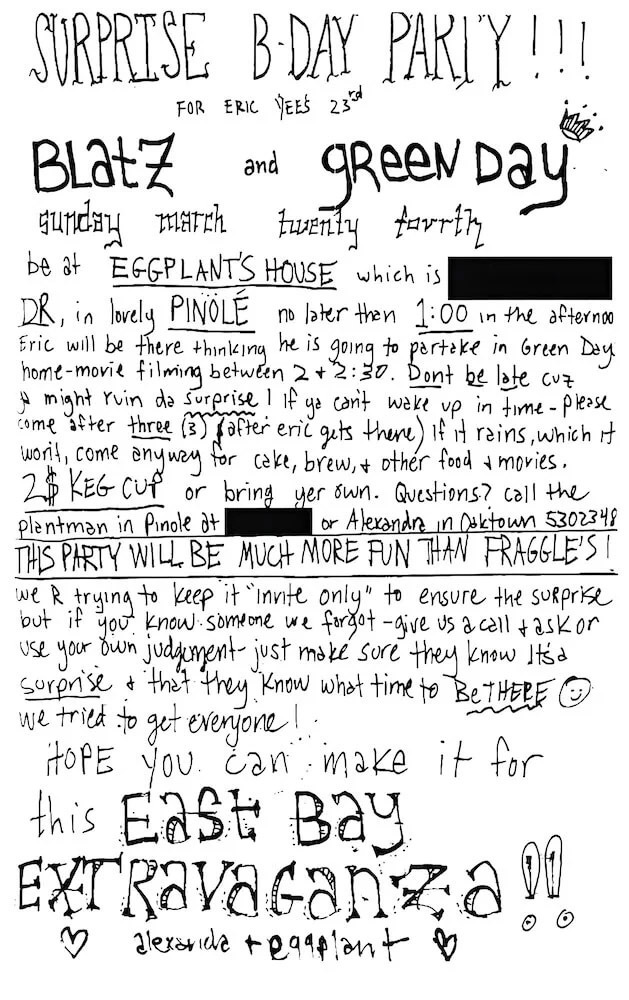 SURPRISE B-DAY PARTY!!!
FOR ERIC YEE'S 23rd
BLatZ and gReen Day
sunday march twenty fourth
be at EGGPLANT'S HOUSE which is
DR, in lovely PINOLÉ no later than 1:00 in the afternoo
Eric will be there thinking he is going to partake in Green Day
home-movie filming between 2 + 2:30. Dont be late cuz
ya might ruin da surprise! If ya can't wake up in time - please
come after three (3) (after eric gets there) If it rains, which it
won't, come anyway for cake, brew, + other food + movies.
2$ KEG CUP or bring yer own. Questions? call the
plantman in Pinole at or Alexandra in Oaktown 5302348
THIS PARTY WILL BE MUCH MORE FUN THAN FRAGGLE'S!
we R trying to keep it "invite only" to ensure the surprise
but if you know someone we forgot - give us a call + ask or
use your own judgement - just make sure they know its a
surprise + that they know what time to Be THERE
we tried to get everyone!
HOPE you can make it for
this East Bay
EXTRavaganza!!
alexandra + eggplant